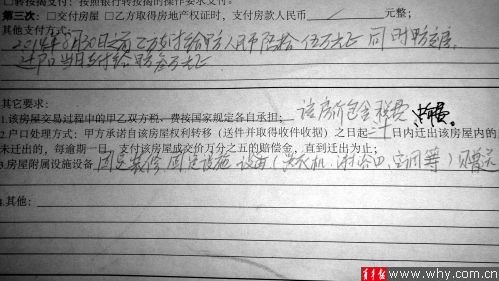 □转按揭支付：按照银行转按揭的操作要求支付。
第三次：□交付房屋 □乙方取得房地产权证时，支付房款人民币 / 元整；
其他支付方式：
2014年8月30日前乙方支付给甲方人民币伍拾伍万元正 同时甲方交房。
过户当日支付给甲方 万元正
其它要求：
1.该房屋交易过程中的甲乙双方税、费按国家规定各自承担； 该房价包含税费、中介费。
2.户口处理方式：甲方承诺自该房屋权利转移（送件并取得收件收据）之日起三十日内迁出该房屋内的
未迁出的，每逾期一日，支付该房屋成交价万分之五的赔偿金，直到迁出为止；
3.房屋附属设施设备 固定装修 固定设施 设备（洗衣机、淋浴四、空调等）赠送
4.其他：
青年报 www.why.com.cn